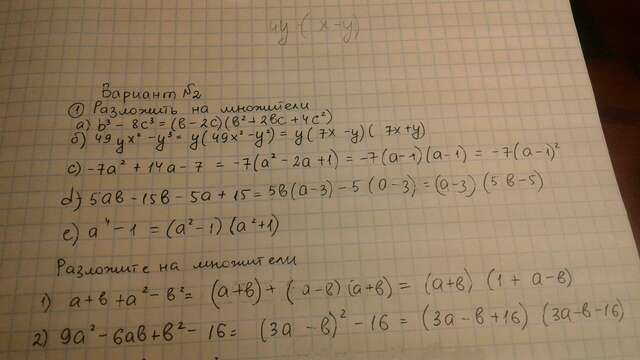 4y (x-y)
Вариант №2
① Разложить на множители
а) b³ - 8c³ = (в - 2c)(в² + 2вc + 4c²)
б) 49yx² - y³ = y(49x² - y²) = y(7x - y)(7x + y)
c) -7a² + 14a - 7 = -7(a² - 2a + 1) = -7(a-1)(a-1) = -7(a-1)²
d) 5ав - 15в - 5а + 15 = 5в(а-3) - 5(а-3) = (а-3)(5в-5)
e) a⁴ - 1 = (a² - 1)(a² + 1)
Разложите на множители
1) а + в + а² - в² = (а+в) + (а-в)(а+в) = (а+в)(1 + а - в)
2) 9а² - 6ав + в² - 16 = (3а - в)² - 16 = (3а - в + 16)(3а - в - 16)